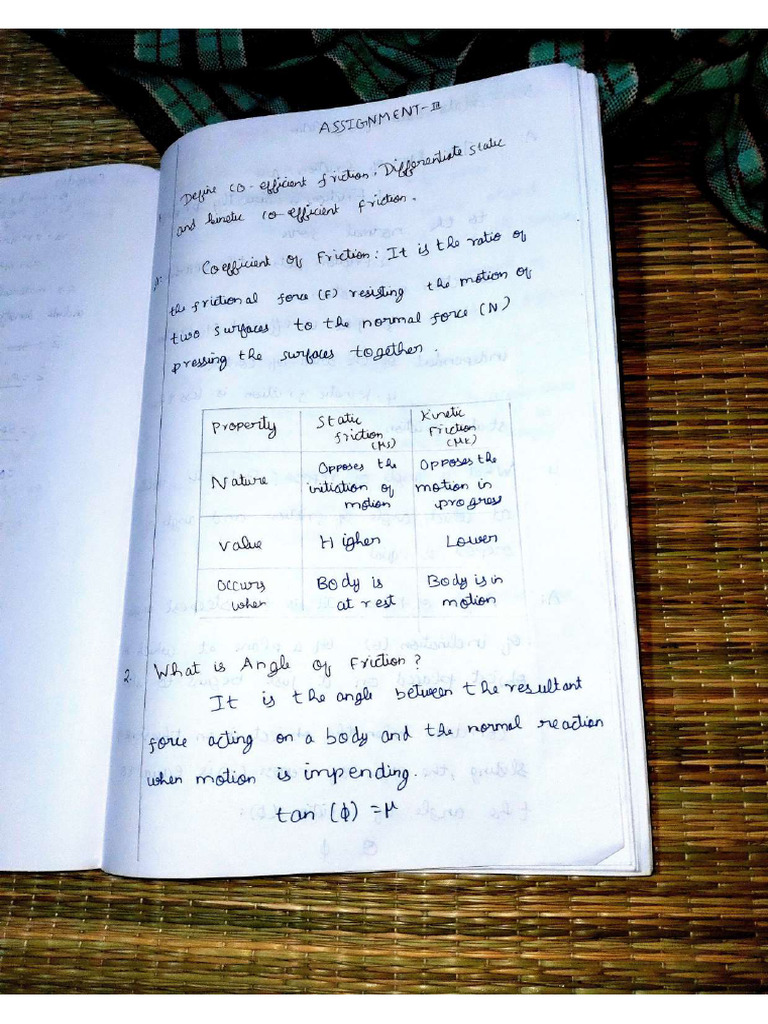 ASSIGNMENT-III
Define co-efficient friction. Differentiate static
and kinetic co-efficient friction.
Coefficient of Friction: It is the ratio of
the frictional force (F) resisting the motion of
two surfaces to the normal force (N)
pressing the surfaces together.
Property Static friction (μs) Kinetic Friction (μk)
Nature Opposes the initiation of motion Opposes the motion in progress
Value Higher Lower
Occurs when Body is at rest Body is in motion
2. What is Angle of Friction?
It is the angle between the resultant
force acting on a body and the normal reaction
when motion is impending.
tan (ϕ) = μ